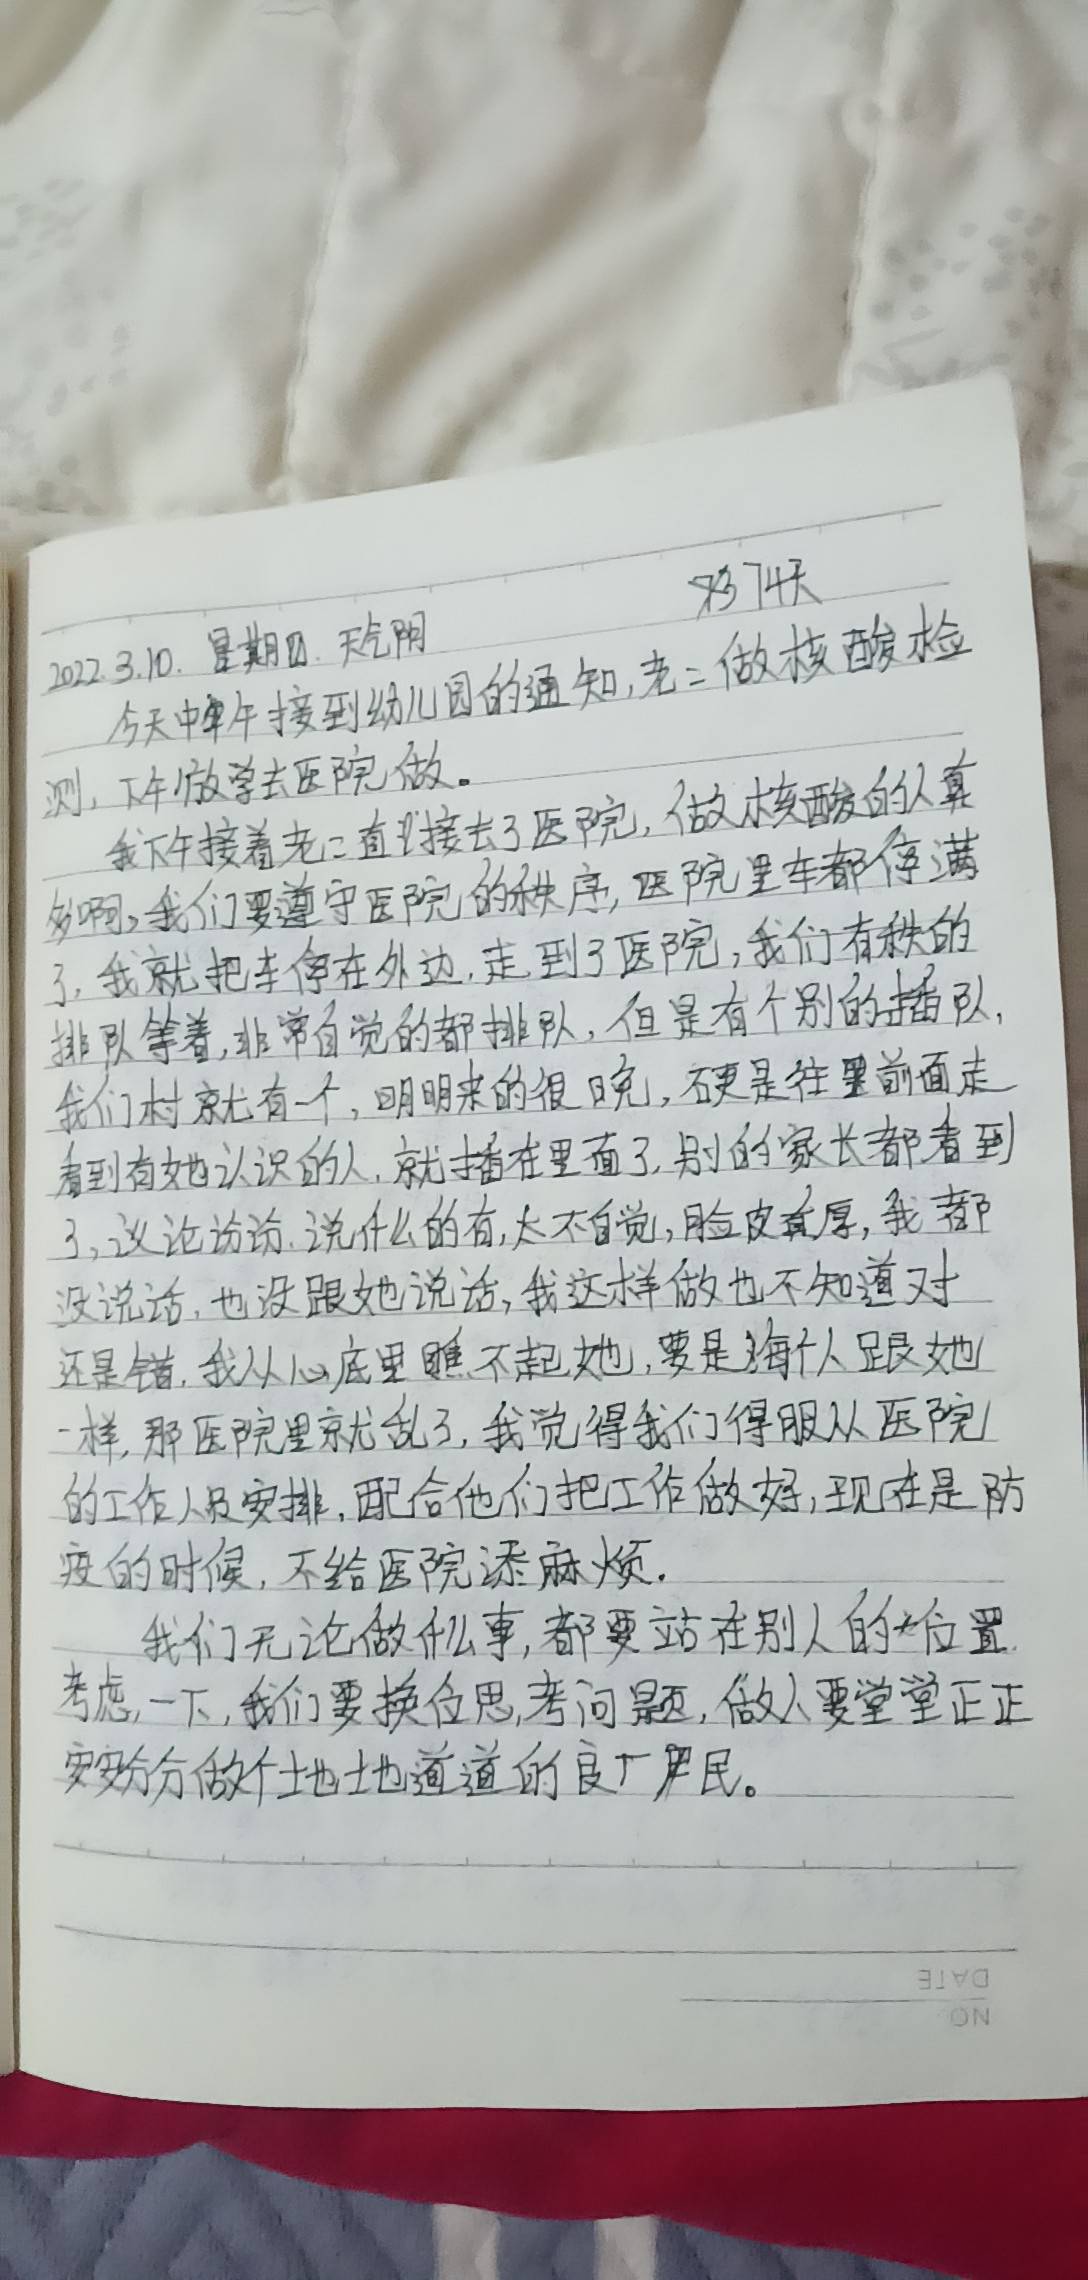 第74天
2022.3.10. 星期四. 天气阴
今天中午接到幼儿园的通知,老二做核酸检
测,下午放学去医院做。
我下午接着老二直接去了医院,做核酸的人真
多啊,我们要遵守医院的秩序,医院里车都停满
了,我就把车停在外边,走到了医院,我们有秩的
排队等着,非常自觉的都排队,但是有个别的插队,
我们村就有一个,明明来的很晚,硬是往里前面走
看到有她认识的人,就插在里面了,别的家长都看到
了,议论访访.说什么的有,太不自觉,脸皮真厚,我都
没说话,也没跟她说话,我这样做也不知道对
还是错,我从心底里瞧不起她,要是每个人跟她
一样,那医院里就乱了,我觉得我们得服从医院
的工作人员安排,配合他们把工作做好,现在是防
疫的时候,不给医院添麻烦.
我们无论做什么事,都要站在别人的位置
考虑,一下,我们要换位思,考问题,做人要堂堂正正
安安分分做个土地土地道道的良民。
DATE
NO